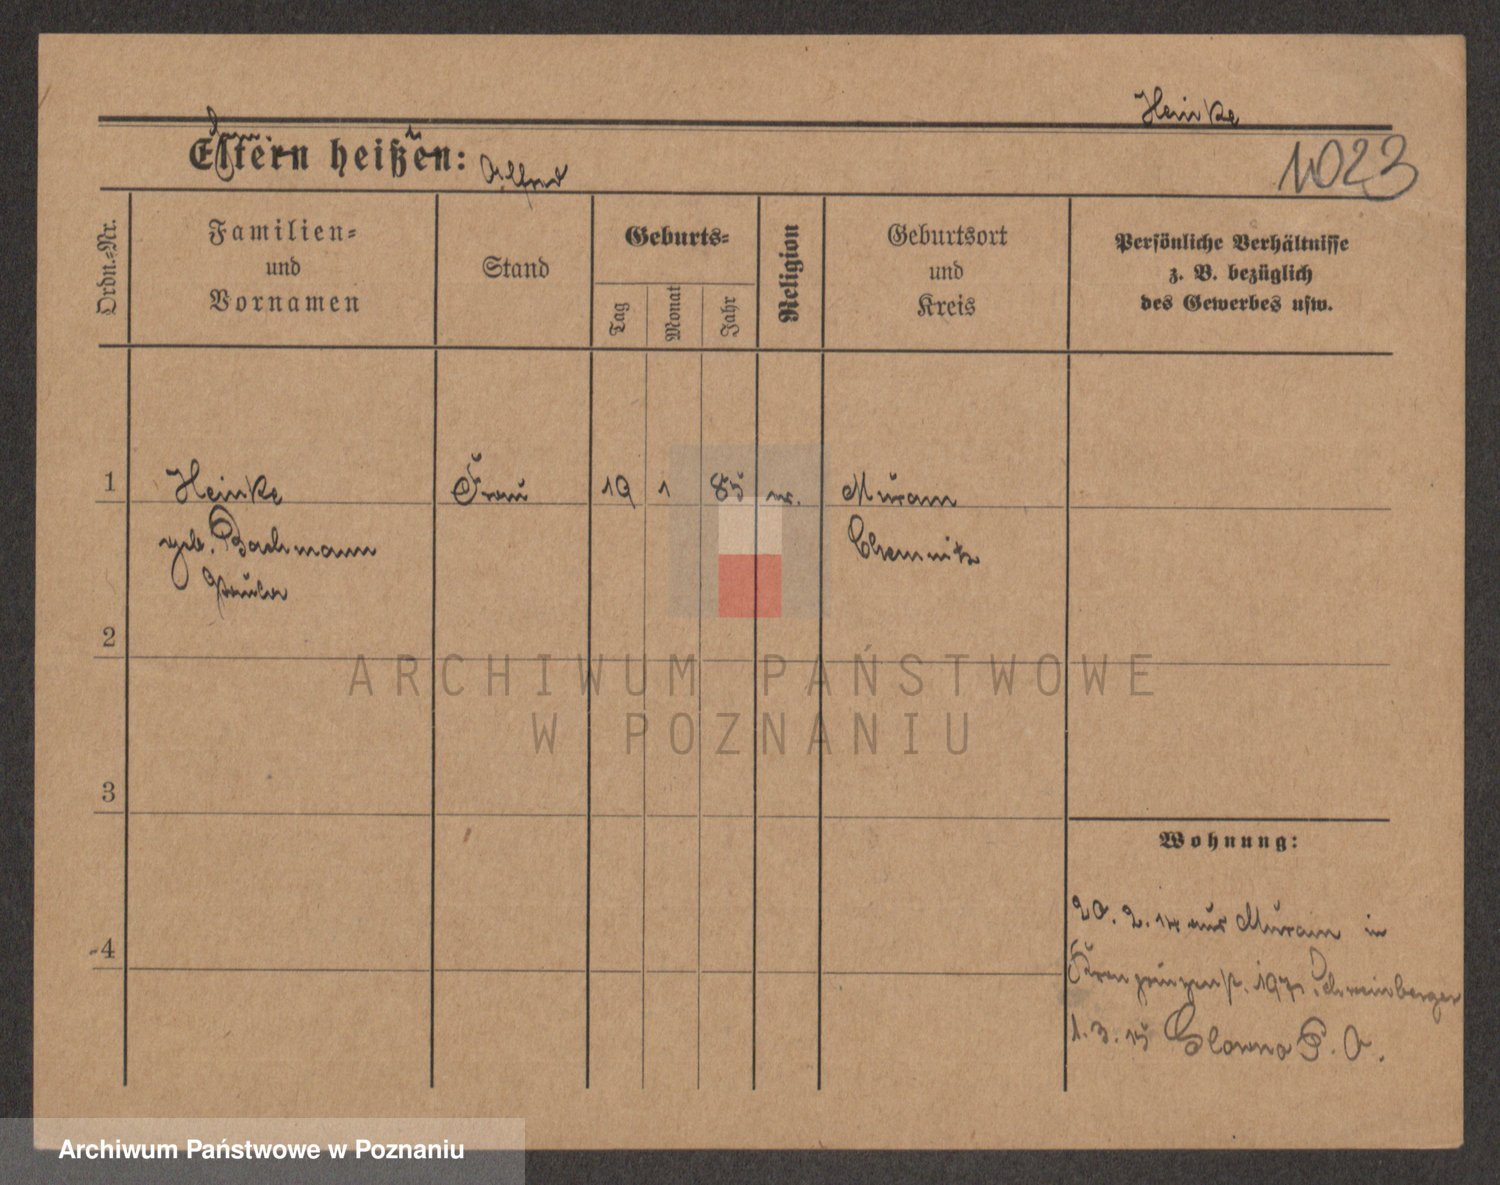 Heinke
Eltern heißen: Alfred
1023
Ordn.-Nr.
Familien-
und
Vornamen
Stand
Geburts-
Tag
Monat
Jahr
Religion
Geburtsort
und
Kreis
Persönliche Verhältnisse
z. B. bezüglich
des Gewerbes usw.
1
Heinke Frau 19 1 85 Muram
geb. Bachmann Chemnitz
Paula
2
ARCHIWUM PAŃSTWOWE
W POZNANIU
3
Wohnung:
20. 2. 14 aus Muram in
4
Kronprinzenst. 197 Schweinberger
1. 3. 15 Glowno P. O.
Archiwum Państwowe w Poznaniu